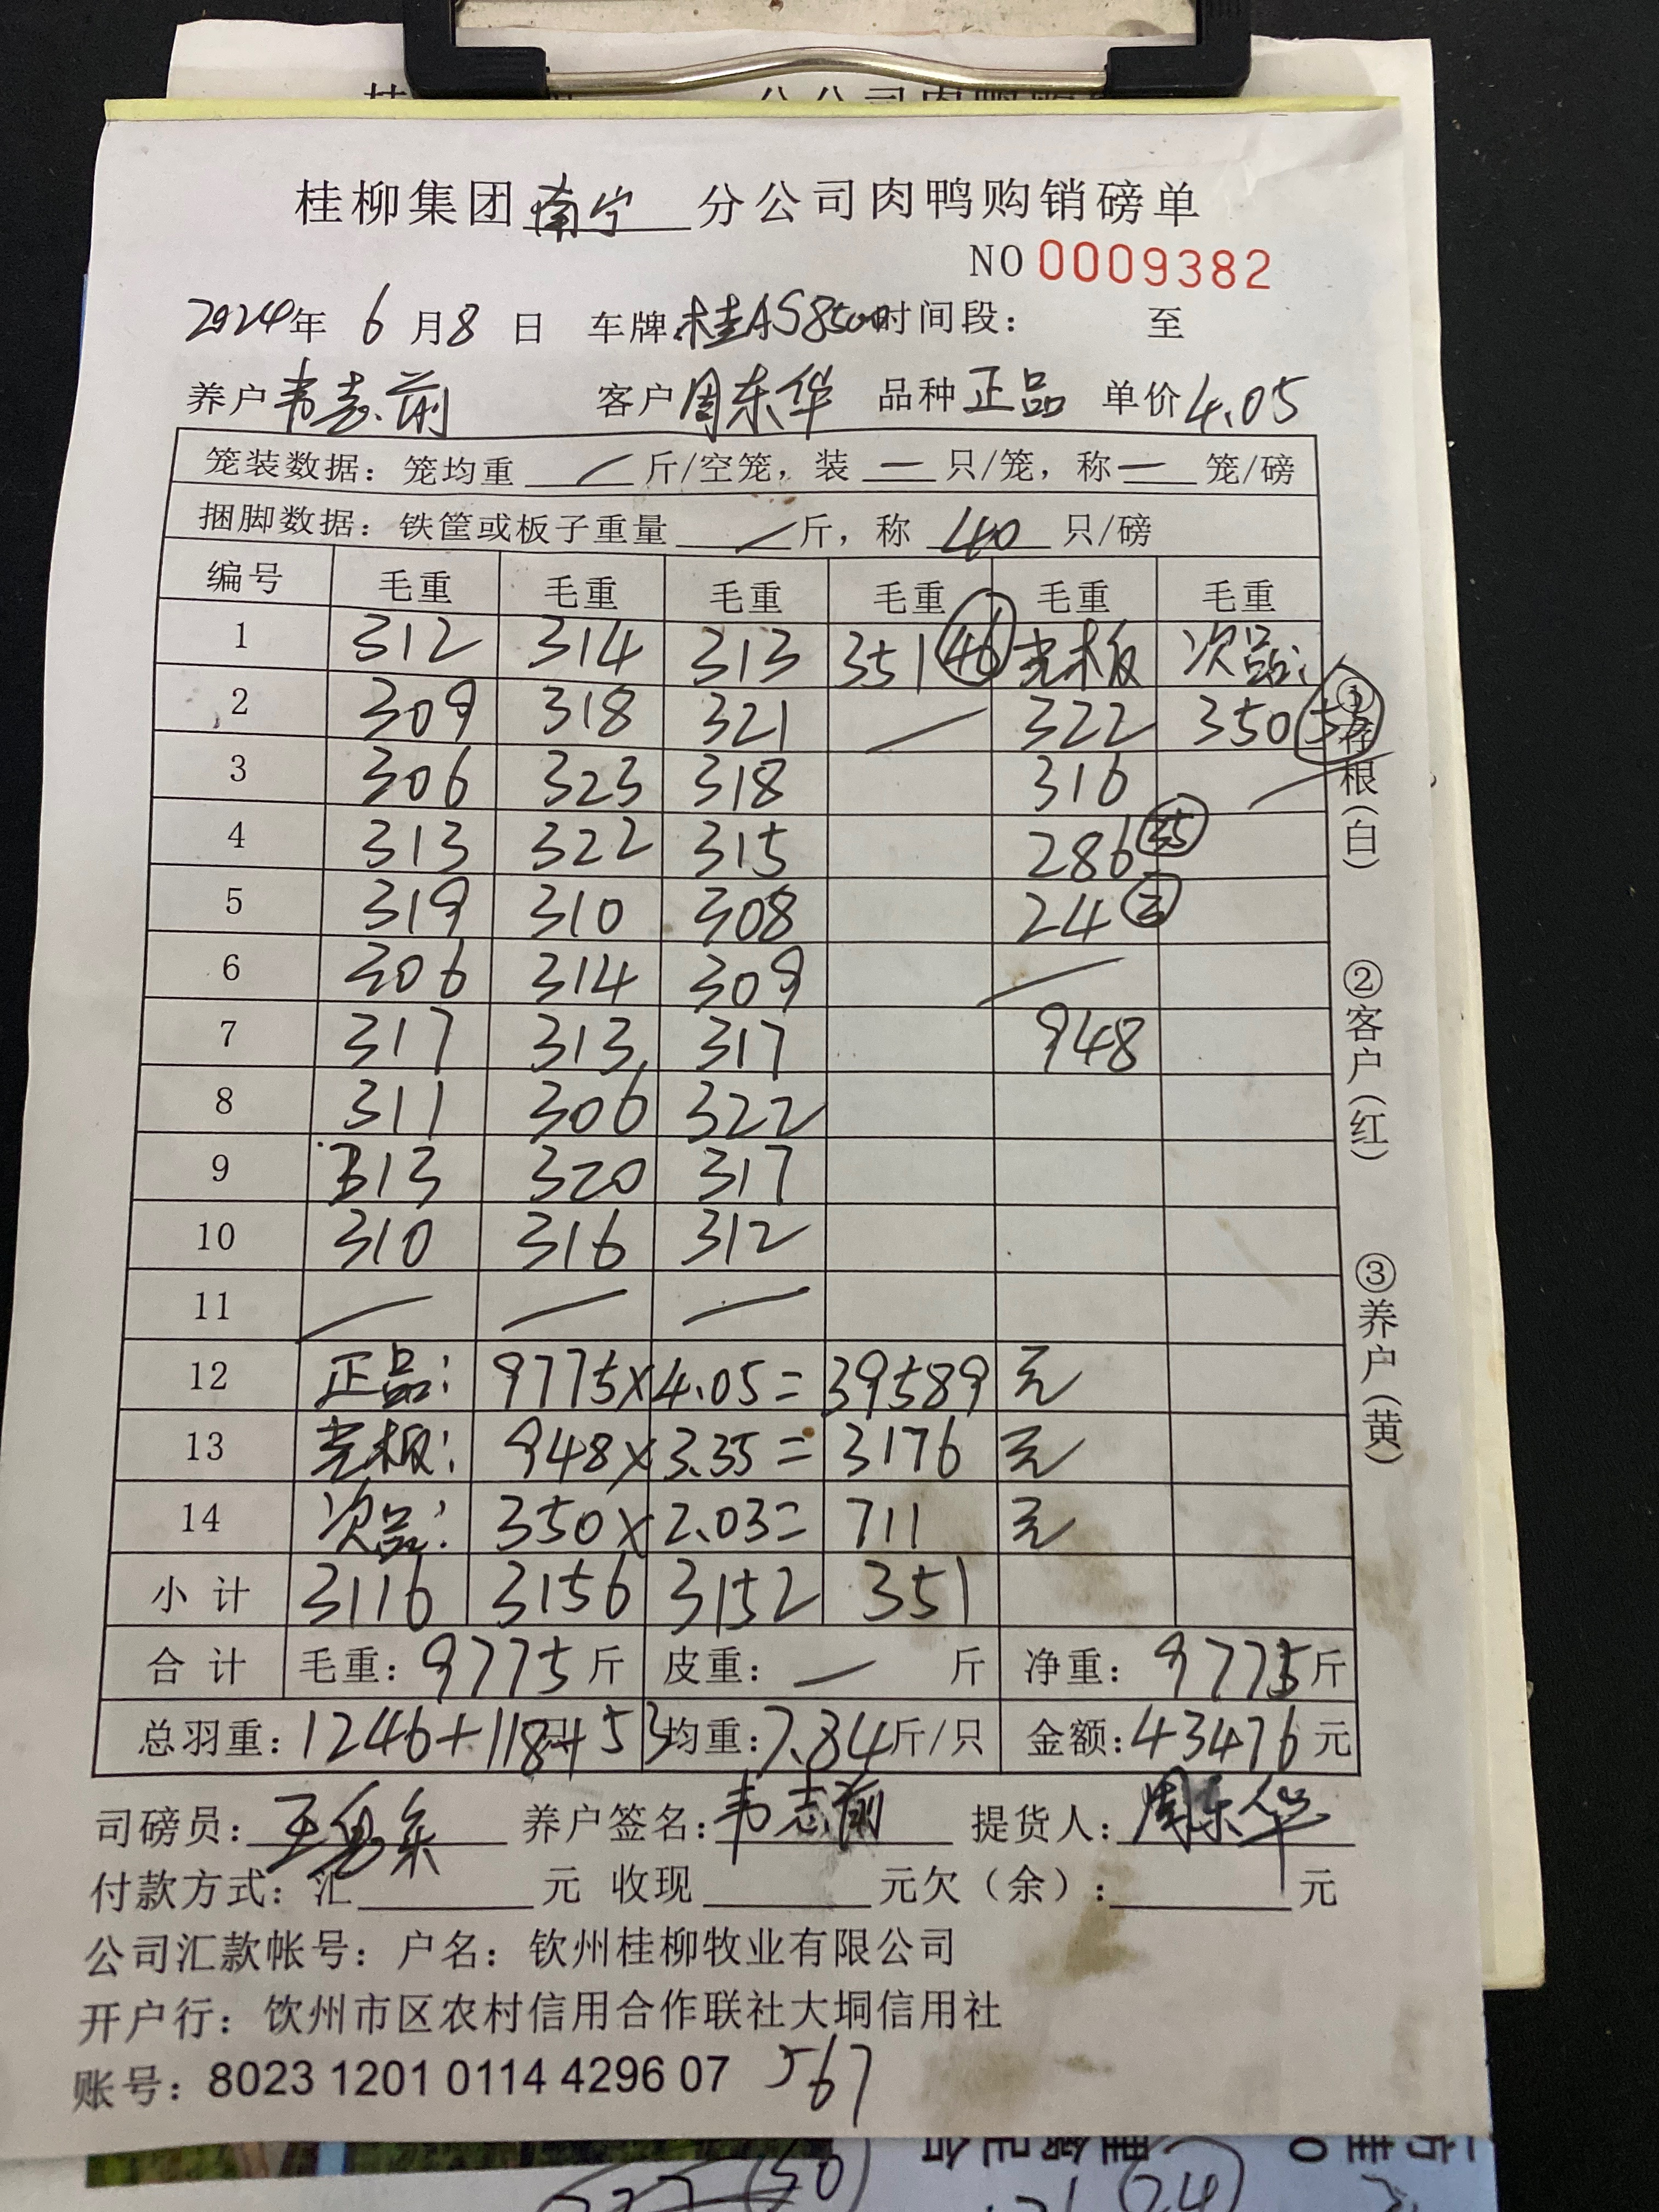 桂柳集团南宁分公司肉鸭购销磅单
NO 0009382
2024年 6月8日 车牌:桂AS8500时间段: 至
养户韦志前 客户周东华 品种正品 单价4.05
笼装数据: 笼均重 — 斤/空笼, 装 — 只/笼, 称 — 笼/磅
捆脚数据: 铁筐或板子重量 — 斤, 称 40 只/磅
编号 毛重 毛重 毛重 毛重 毛重 毛重
1 312 314 313 351 46 光板 次品:
2 309 318 321 — 322 350 53
3 306 323 318 316 —
4 313 322 315 286 35
5 319 310 308 24 3
6 306 314 309 —
7 317 313 317 948
8 311 306 322
9 313 320 317
10 310 316 312
11 — — —
12 正品: 9775×4.05= 39589 元
13 光板: 948×3.35= 3176 元
14 次品: 350×2.03= 711 元
小计 3116 3156 3152 351
合计 毛重: 9775斤 皮重: — 斤 净重: 9775斤
总羽重: 1246+118+53 均重: 7.84斤/只 金额: 43476元
司磅员: 养户签名: 韦志前 提货人: 周东华
付款方式: 汇 元 收现 元欠(余): 元
公司汇款帐号: 户名: 钦州桂柳牧业有限公司
开户行: 钦州市区农村信用合作联社大垌信用社
账号: 8023 1201 0114 4296 07 567
①存根(白)
②客户(红)
③养户(黄)